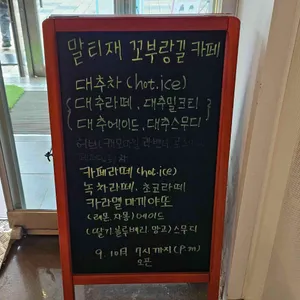 말티재 꼬부랑길 카페
대추차 (hot.ice)
대추라떼. 대추밀크티
대추에이드. 대추스무디
카페라떼 (hot.ice)
녹차라떼. 초코라떼
카라멜 마끼야또
(레몬.자몽) 에이드
(딸기.블루베리.망고) 스무디
9. 10月 7시까지 (P.m)
오픈